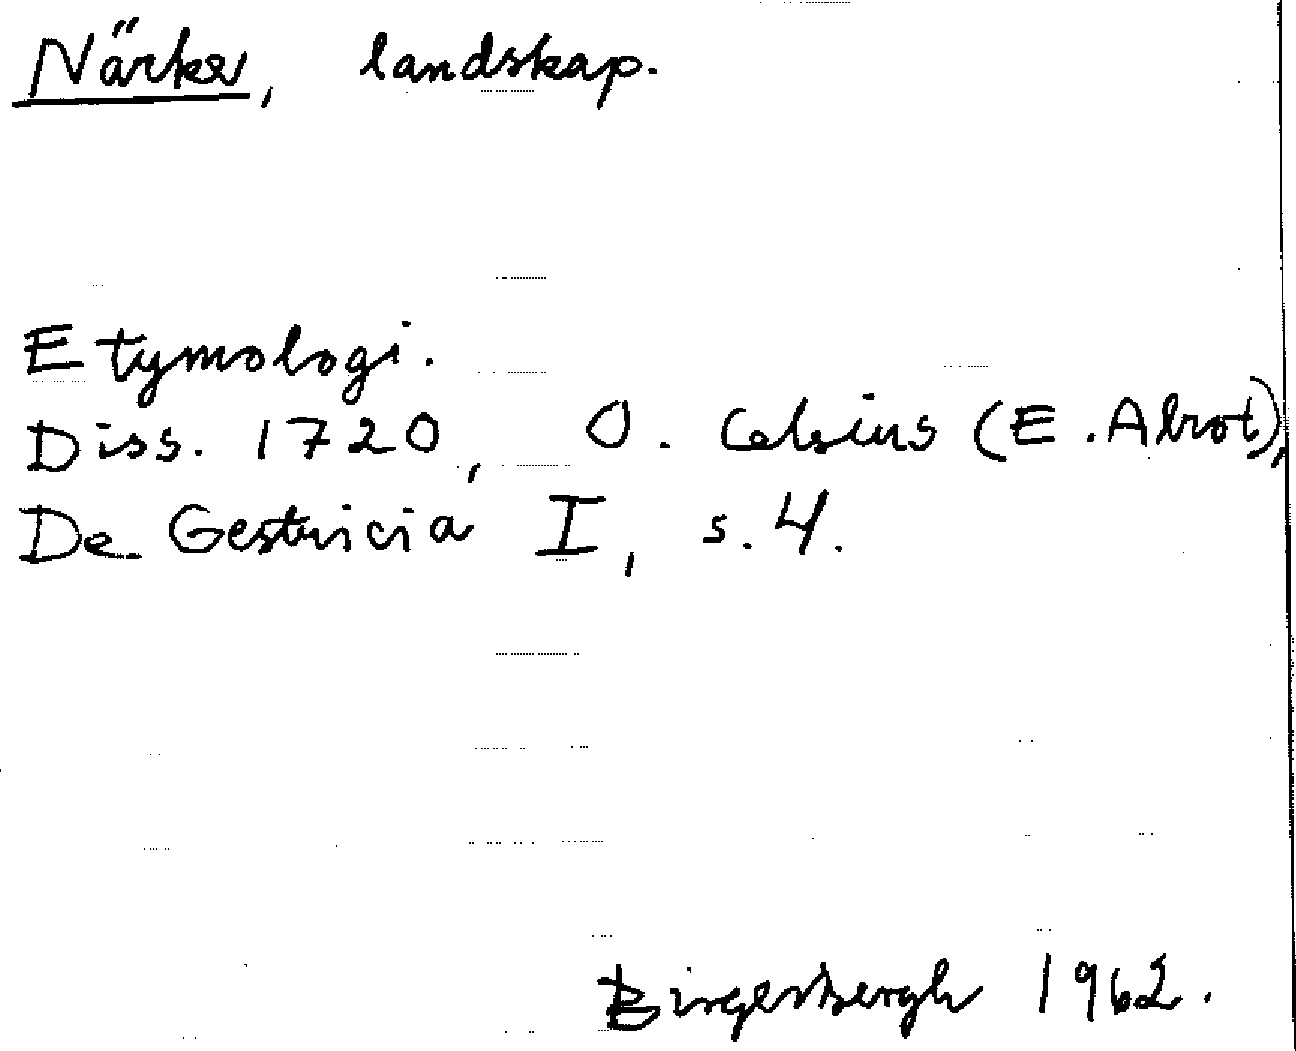 Närke, landskap.
Etymologi.
Diss. 1720, O. Celsius (E. Alrot),
De Gestricia I, s. 4.
Birgersbergh 1962.